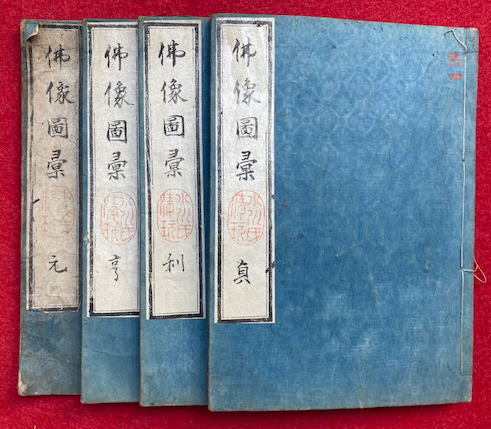 佛像圖彙 貞
佛像圖彙 利
佛像圖彙 亨
佛像圖彙 元